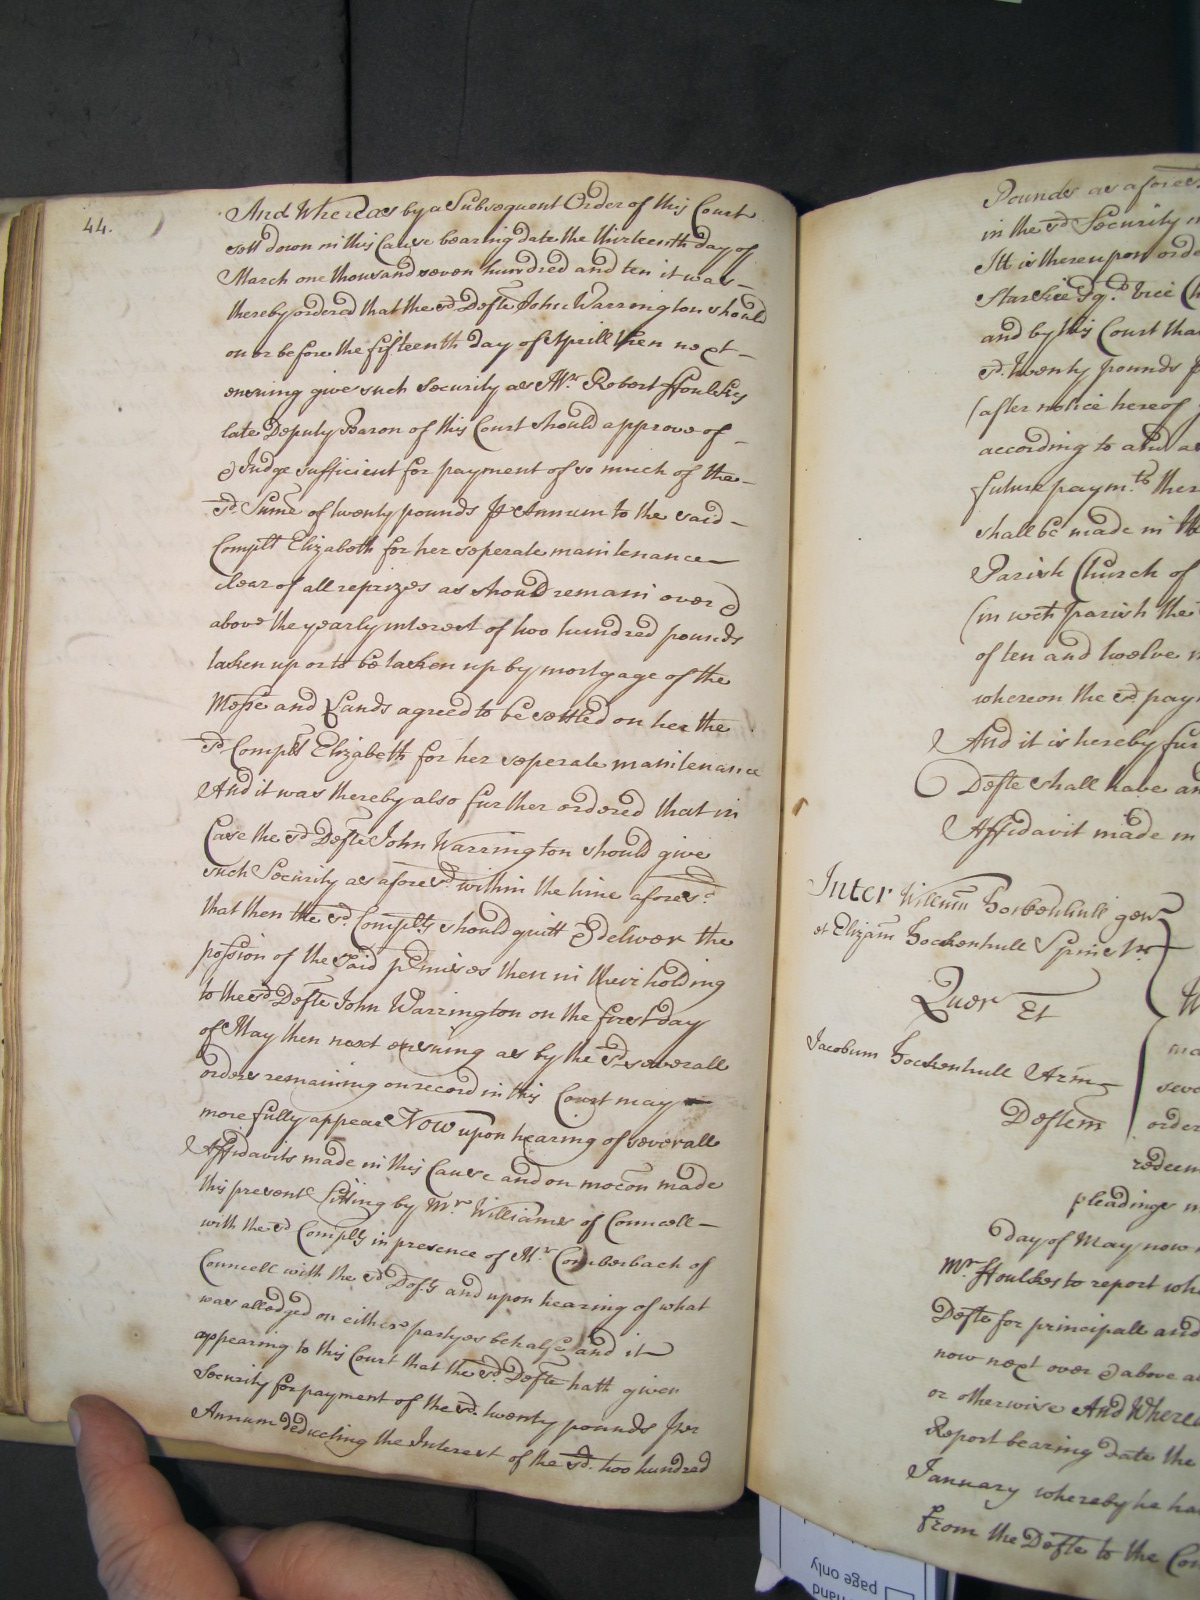 44.
And Whereas by a Subsequent Order of this Court
sett down in this Cause bearing date the thirteenth day of
March one thousand seven hundred and ten it was
thereby ordered that the sd. Defte John Warrington should
on or before the fifteenth day of Aprill then next
ensuing give such Security as Mr. Robert Ffoulkes
late Deputy Baron of this Court should approve of
& Judge sufficient for payment of so much of the
sd. Sume of twenty pounds p Annum to the said
Complt Elizabeth for her seperate maintenance
clear of all reprizes as should remain over &
above the yearly interest of two hundred pounds
taken up or to be taken up by mortgage of the
Messe and Lands agreed to be settled on her the
sd. Complt Elizabeth for her seperate maintenance
And it was thereby also further ordered that in
Case the sd. Defte John Warrington should give
such Security as aforesd. within the time aforesd.
that then the sd. Complts should quitt & deliver the
possion of the said pmises then in their holding
to the sd. Defte John Warrington on the first day
of May then next ensuing as by the sd. severall
orders remaining on record in this Court may
more fully appear Now upon hearing of severall
Affidavits made in this Cause and on mocon made
this present Sitting by Mr. Williams of Councell
with the sd. Complts in presence of Mr. Comberbach of
Councell with the sd. Defts and upon hearing of what
was alledged on either partyes behalfe and it
appearing to this Court that the sd. Defte hath given
Security for payment of the sd. twenty pounds per
Annum deducting the Interest of the sd. two hundred
Pounds as afores
in the sd. Security
Itt is thereupon orde
Starkie Esq. Vice
and by this Court tha
sd. twenty pounds
(after notice hereof
according to and
future paymts. ther
shall be made in the
Parish Church of
(in wch parish the
of ten and twelve
whereon the sd. pay
And it is hereby fur
Defte shall have an
Affidavit made in
Inter Willim Hockenhull gen
et Elizam Hockenhull Spinstr
Quer Et
Jacobum Hockenhull Arm
Deftem
seve
order
redeem
pleadings
day of May now
Mr. Ffoulkes to report wh
Defte for principall and
now next over & above a
or otherwise And Where
Report bearing Date the
January whereby he ha
From the Defte to the Co
page only